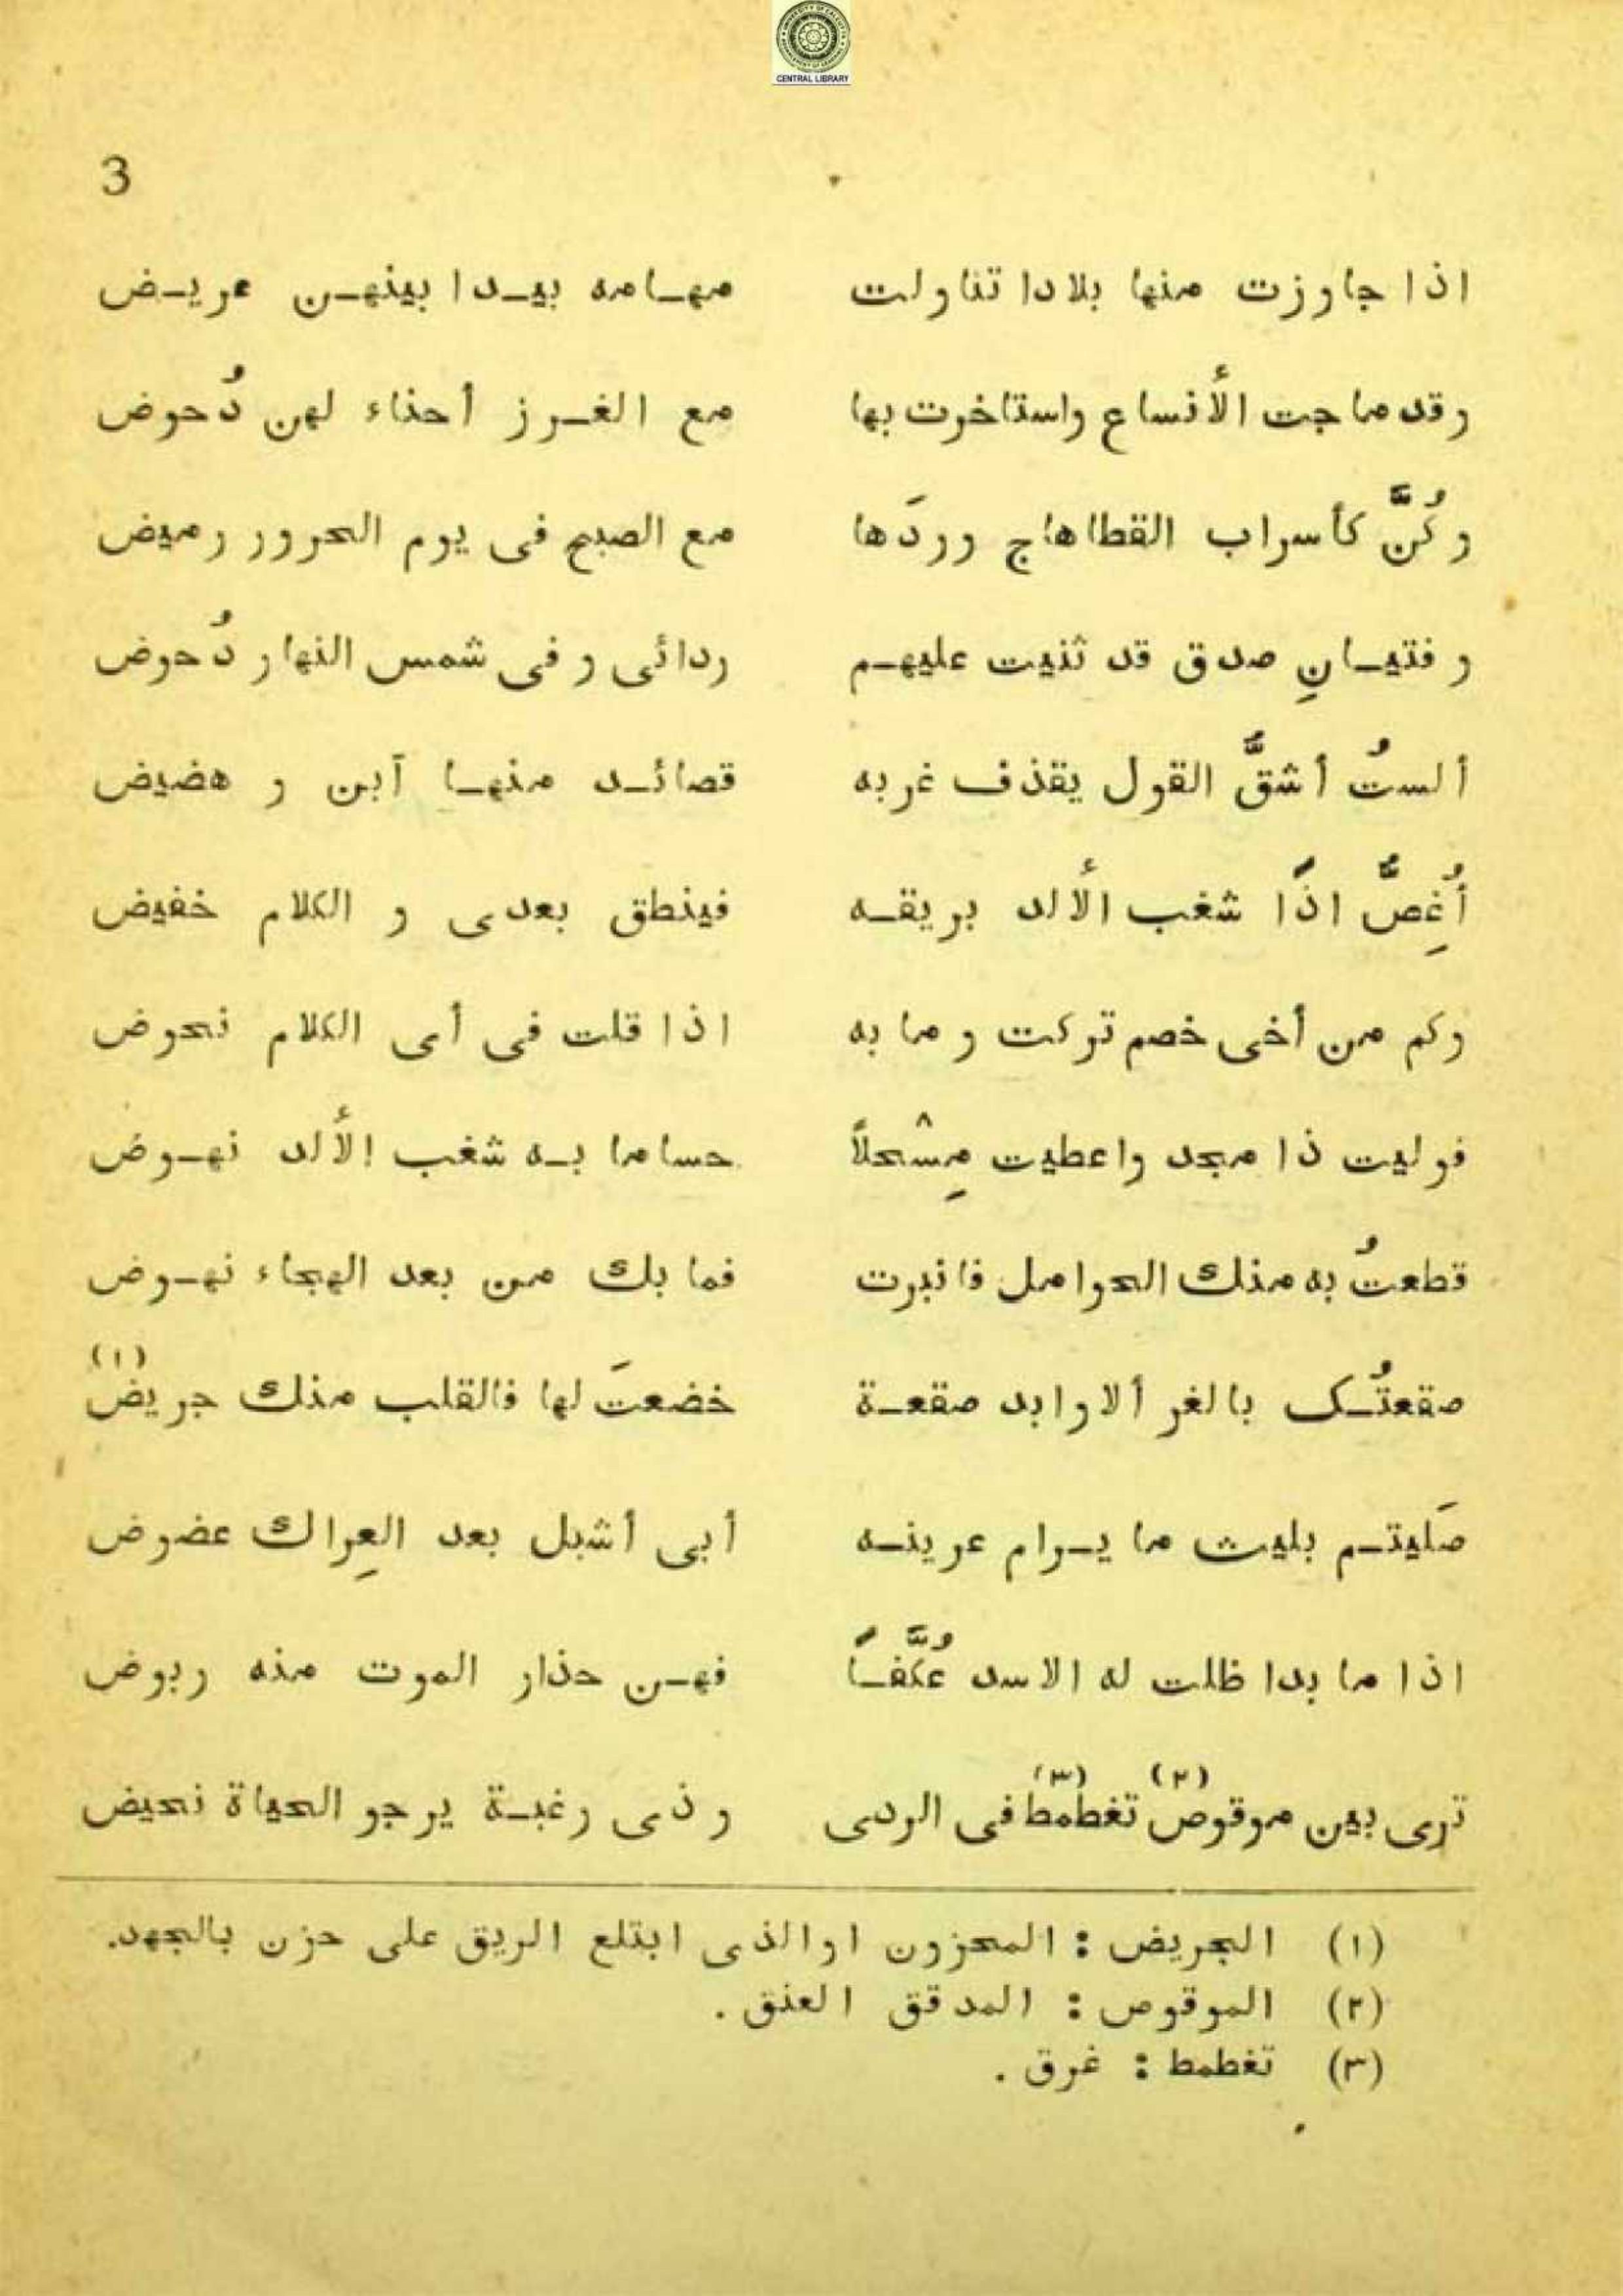 CENTRAL LIBRARY
3
اذا جاوزت منها بلادا تناولت مهـامه بيـدا بينهـن عريـض
وقد ماجت الأُنساع واستاخرت بها مع الغـرز أحناء لهن دُحوض
وكُنَّ كأسراب القطا هاج وردَها مع الصبح فى يوم الحرور رميض
وفتيـانِ صدق قد ثنيت عليهـم ردائى و فى شمس النهار دُحوض
ألستُ أشقَّ القول يقذف غربه قصائـد منهـا آبن و هضيض
أُغِصَّ اذًا شغب الألد بريقـه فينطق بعدى و الكلام خفيض
وكم من أخى خصم تركت وما به اذا قلت فى أى الكلام نحوض
فوليت ذا مجد واعطيت مِسْحلاً حساما بـه شغب الألد نهـوض
قطعتُ به منك الحوامل فانبرت فما بك من بعد الهجاء نهـوض
صقعتُـك بالغر ألاوابد صقعـة خضعتَ لها فالقلب منك جريض (١)
صَليتـم بليث ما يـرام عرينـه أبى أشبل بعد العِراك عضوض
اذا ما بدا ظلت له الاسد عُكَّفـاً فهـن حذار الموت منه ربوض
ترى بين موقوص (٢) تغطمط (٣) فى الردى و ذى رغبـة يرجو الحياة نحيض
(١) الجريض : المحزون اوالذى ابتلع الريق على حزن بالجهد.
(٢) الموقوص : المدقق العنق .
(٣) تغطمط : غرق .